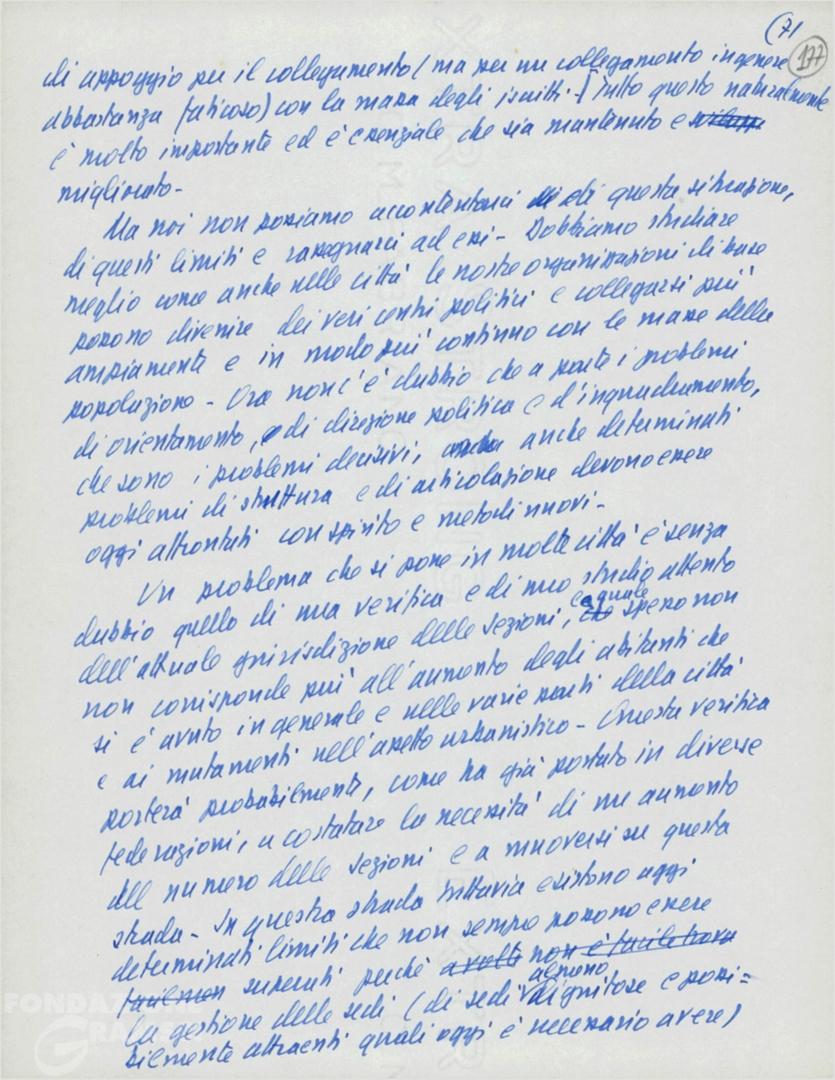 (71
177
di appoggio per il collegamento (ma per un collegamento in genere
abbastanza faticoso) con la massa degli iscritti. Tutto questo naturalmente
è molto importante ed è essenziale che sia mantenuto e
migliorato -
Ma noi non possiamo accontentarci di questa situazione,
di questi limiti e rassegnarci ad essi - Dobbiamo studiare
meglio come anche nelle città le nostre organizzazioni di base
possono divenire dei veri centri politici e collegarsi più
ampiamente e in modo più continuo con le masse della
popolazione - Ora non c'è dubbio che a parte i problemi
di orientamento, e di direzione politica e d'inquadramento,
che sono i problemi decisivi, anche anche determinati
problemi di struttura e di articolazione devono essere
oggi affrontati con spirito e metodi nuovi -
Un problema che si pone in molte città è senza
dubbio quello di una verifica e di uno studio attento
dell'attuale giurisdizione delle sezioni, che la quale spesso non
non corrisponde più all'aumento degli abitanti che
si è avuto in generale e nelle varie parti della città
e ai mutamenti nell'assetto urbanistico - Questa verifica
porterà probabilmente, come ha già portato in diverse
federazioni, a costatare la necessità di un aumento
del numero delle sezioni e a muoversi su questa
strada - In questa strada tuttavia esistono oggi
determinati limiti che non sempre possono essere
facilmen superati perché a volte non è facile trova
la gestione delle sedi (di sedi almeno dignitose e possi=
bilmente attraenti quali oggi è necessario avere)
FONDAZIONE
GRAMSCI